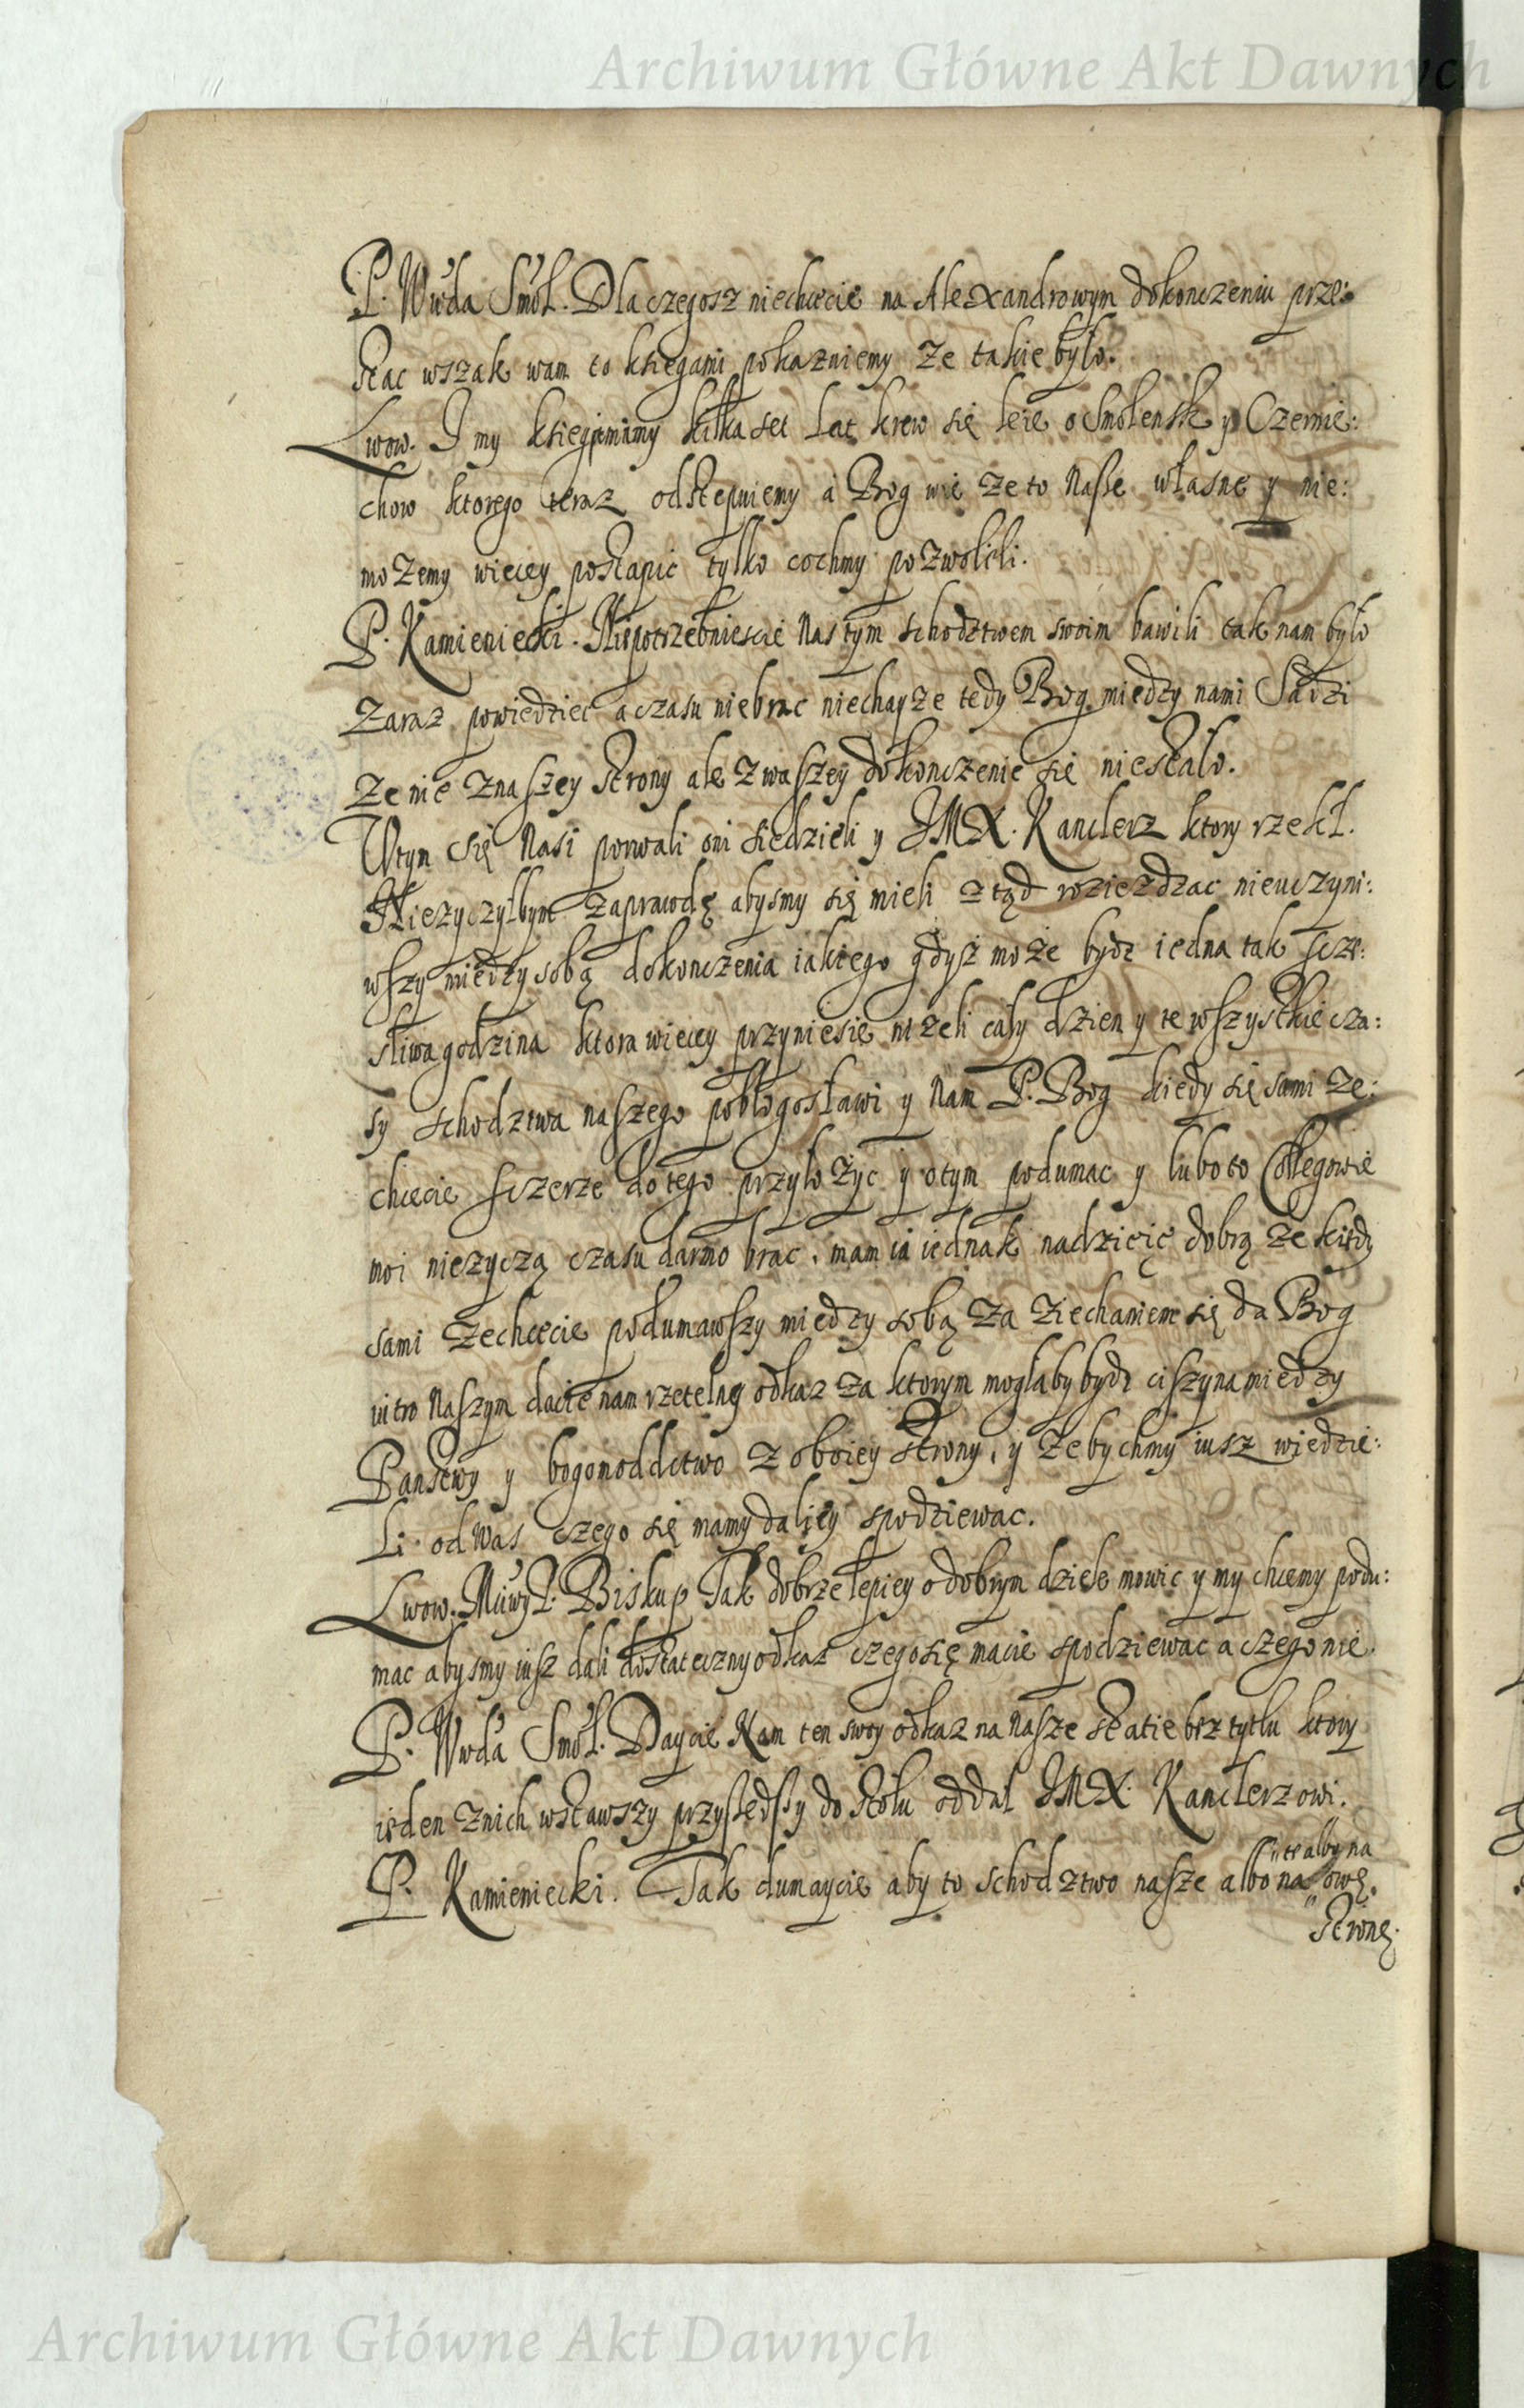 Archiwum Główne Akt Dawnych
P. Wwda Smol. Dla czegosz niechcecie na Alexandrowym dokonczeniu prze:
stac wszak wam to ksiegami pokazniemy ze takie było.
Lwow. I my ksiegi mamy kilka set lat krew się leie o Smolensk y Czernie:
chow ktorego teraz odstepuiemy a Bog wie ze to Nasse własne y nie:
mozemy wiecey postapic tylko cochmy pozwolili.
P. Kamieniecki. Niepotrzebniescie Nas tym schodztwem swoim bawili tak nam było
zaraz powiedziec a czasu niebrac niechayze tedy Bog miedzy nami Sadzi
ze nie z naszey strony ale z waszey dokonczenie się niestało.
Wtym się Nasi porwali oni siedzieli y JMX. Kanclerz ktory rzekł.
Niezyczyłbym zaprawdę abysmy się mieli z tąd roziezdzac nieuczyni:
wszy miedzy sobą dokonczenia iakiego gdyż może bydz iedna tak scze:
sliwa godzina ktora wiecey przyniesie nizeli cały dzien y te wszystkie cza:
sy schodztwa naszego pobłogosławi y Nam P. Bog kiedy się sami ze:
chcecie sczerze do tego przyłożyc y o tym podumac y lubo to Collegowie
moi nieżyczą czasu darmo brac, mam ia iednak nadzieię dobrą ze kiedy
sami zechcecie podumawszy miedzy sobą za ziechaniem się da Bog
iutro Naszym dacie nam rzetelny odkaz za ktorym mogłaby bydz ciszyna miedzy
Panstwy y bogomodlctwo z oboiey strony, y zebychmy iusz wiedzie:
Li od Was czego się mamy daliey spodziewac.
Lwow. Muwy P. Biskup Tak dobrze lepiey o dobrym dziele mowic y my chcemy podu:
mac abysmy iusz dali dostateczny odkaz czego się macie spodziewac a czego nie.
P. Wwda Smol. Daycie Nam ten swoy odkaz na nasze statie bez tytłu ktory
ieden z nich wstawszy przyszedszy do stołu oddał JMX. Kanclerzowi.
P. Kamieniecki. Tak dumaycie aby to schodztwo nasze albo na te alby na owę
stronę.
Archiwum Główne Akt Dawnych